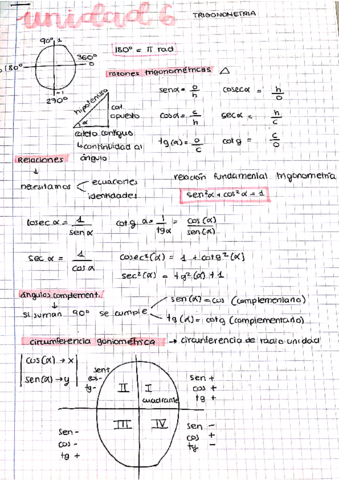 unidad 6
TRIGONOMETRÍA
90º, 1
180º
360º
0
-1
270º
180º = π rad
razones trigonométricas △
hipotenusa
cat. opuesto
α
cateto contiguo
↳ continuidad al ángulo
sen α = o/h cosec α = h/o
cos α = c/h sec α = h/c
tg (α) = o/c cotg = c/o
Relaciones
↓
necesitamos ecuaciones
identidades
relación fundamental trigonometría
sen²α + cos²α = 1
cosec α = 1/sen α cotg α = 1/tg α = cos(α)/sen(α)
sec α = 1/cos α
cosec²(α) = 1 + cotg²(α)
sec²(α) = tg²(α) + 1
ángulos complement.
↓
si suman 90º se cumple
sen(α) = cos (complementario)
tg(α) = cotg (complementario)
circunferencia goniométrica → circunferencia de radio unidad
cos(α) → x
sen(α) → y
sen+
cos-
tg-
II
I
cuadrante
sen +
cos +
tg +
III
IV
sen -
cos -
tg +
sen -
cos +
tg -